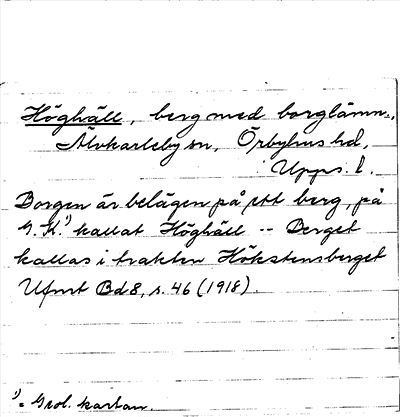 Höghäll, berg med borglämn.,
Älvkarleby sn, Örbyhus hd,
Upps. l.
Borgen är belägen på ett berg, på
G. K.¹) kallat Höghäll -- Berget
kallas i trakten Hökstensberget
Ufmt Bd 8, s. 46 (1918).
¹) = Geol. kartan.